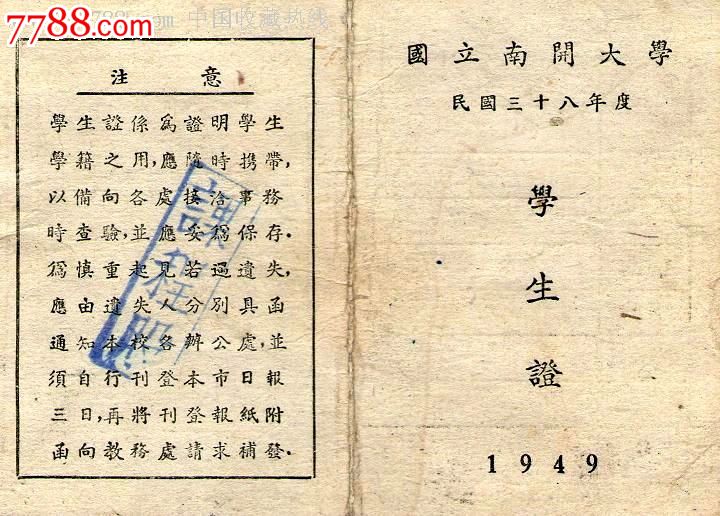 7788.com
7788.com 中国收藏热线
注意
學生證係爲證明學生
學籍之用,應隨時携帶,
以備向各處接洽事務
時查驗,並應妥爲保存.
爲慎重起見若遇遺失,
應由遺失人分別具函
通知本校各辦公處,並
須自行刊登本市日報
三日,再將刊登報紙附
函向教務處請求補發.
課程股
國立南開大學
民國三十八年度
學生證
1949